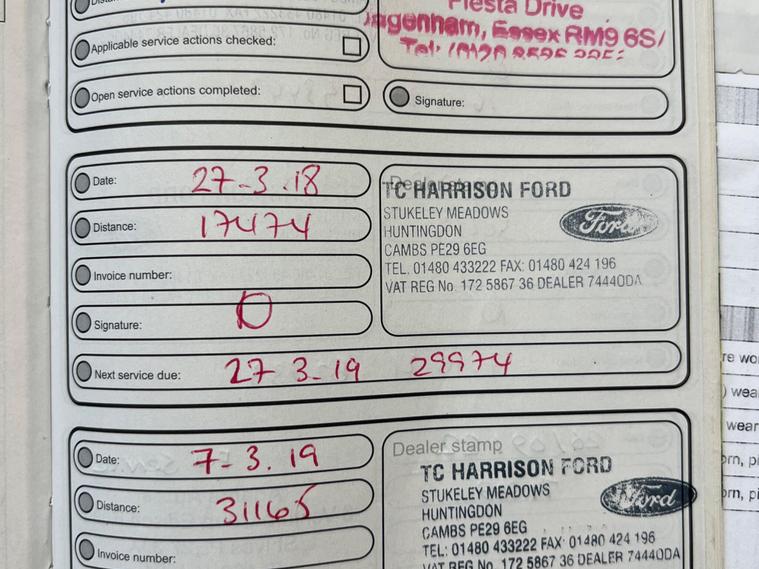 Fiesta Drive
Dagenham, Essex RM9 6S
Applicable service actions checked:
Tel:
Open service actions completed:
Signature:
Date: 27-3.18
Dealer stamp
TC HARRISON FORD
STUKELEY MEADOWS
HUNTINGDON
CAMBS PE29 6EG
TEL. 01480 433222 FAX: 01480 424 196
VAT REG No. 172 5867 36 DEALER 74440DA
Ford
Distance: 17474
Invoice number:
Signature:
Next service due: 27 3-19 29974
Date: 7-3.19
Dealer stamp
TC HARRISON FORD
STUKELEY MEADOWS
HUNTINGDON
CAMBS PE29 6EG
TEL: 01480 433222 FAX: 01480 424 196
VAT REG No. 172 5867 36 DEALER 74440DA
Ford
Distance: 31165
Invoice number:
wear